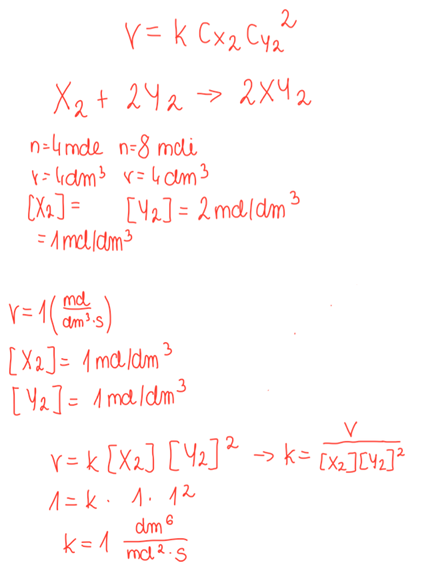 v = k Cx₂ Cy₂²
X₂ + 2Y₂ → 2XY₂
n=4mole n=8 moli
v=4dm³ v=4dm³
[X₂]= [Y₂]=2mol/dm³
=1mol/dm³
v=1(mol/dm³·s)
[X₂]= 1mol/dm³
[Y₂]= 1mol/dm³
v=k[X₂][Y₂]² → k= v/[X₂][Y₂]²
1=k· 1· 1²
k=1 dm⁶/mol²·s